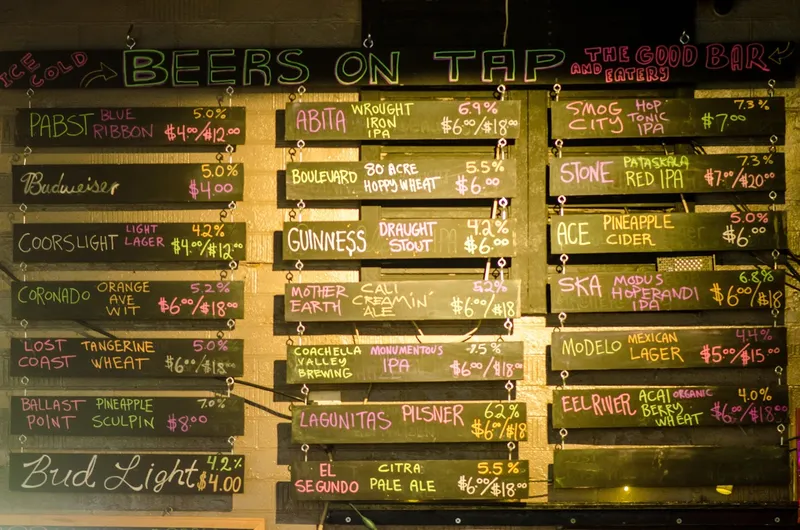 ICE COLD
BEERS ON TAP
THE GOOD BAR
AND EATERY
PABST BLUE RIBBON 5.0% $4.00/$12.00
Budweiser 5.0% $4.00
COORS LIGHT LIGHT LAGER 4.2% $4.00/$12.00
CORONADO ORANGE AVE WIT 5.2% $6.00/$18.00
LOST COAST TANGERINE WHEAT 5.0% $6.00/$18.00
BALLAST POINT PINEAPPLE SCULPIN 7.0% $8.00
Bud Light 4.2% $4.00
ABITA WROUGHT IRON IPA 6.9% $6.00/$18.00
BOULEVARD 80 ACRE HOPPY WHEAT 5.5% $6.00
GUINNESS DRAUGHT STOUT 4.2% $6.00
MOTHER EARTH CALI CREAMIN' ALE 5.2% $6.00/$18
COACHELLA VALLEY BREWING MONUMENTOUS IPA 7.5% $6.00/$18
LAGUNITAS PILSNER 6.2% $6.00/$18
EL SEGUNDO CITRA PALE ALE 5.5% $6.00/$18.00
SMOG CITY HOP TONIC IPA 7.3% $7.00
STONE PATASKALA RED IPA 7.3% $7.00/$20.00
ACE PINEAPPLE CIDER 5.0% $6.00
SKA MODUS HOPERANDI IPA 6.8% $6.00/$18
MODELO MEXICAN LAGER 4.4% $5.00/$15.00
EEL RIVER ACAI BERRY WHEAT ORGANIC 4.0% $6.00/$18.00